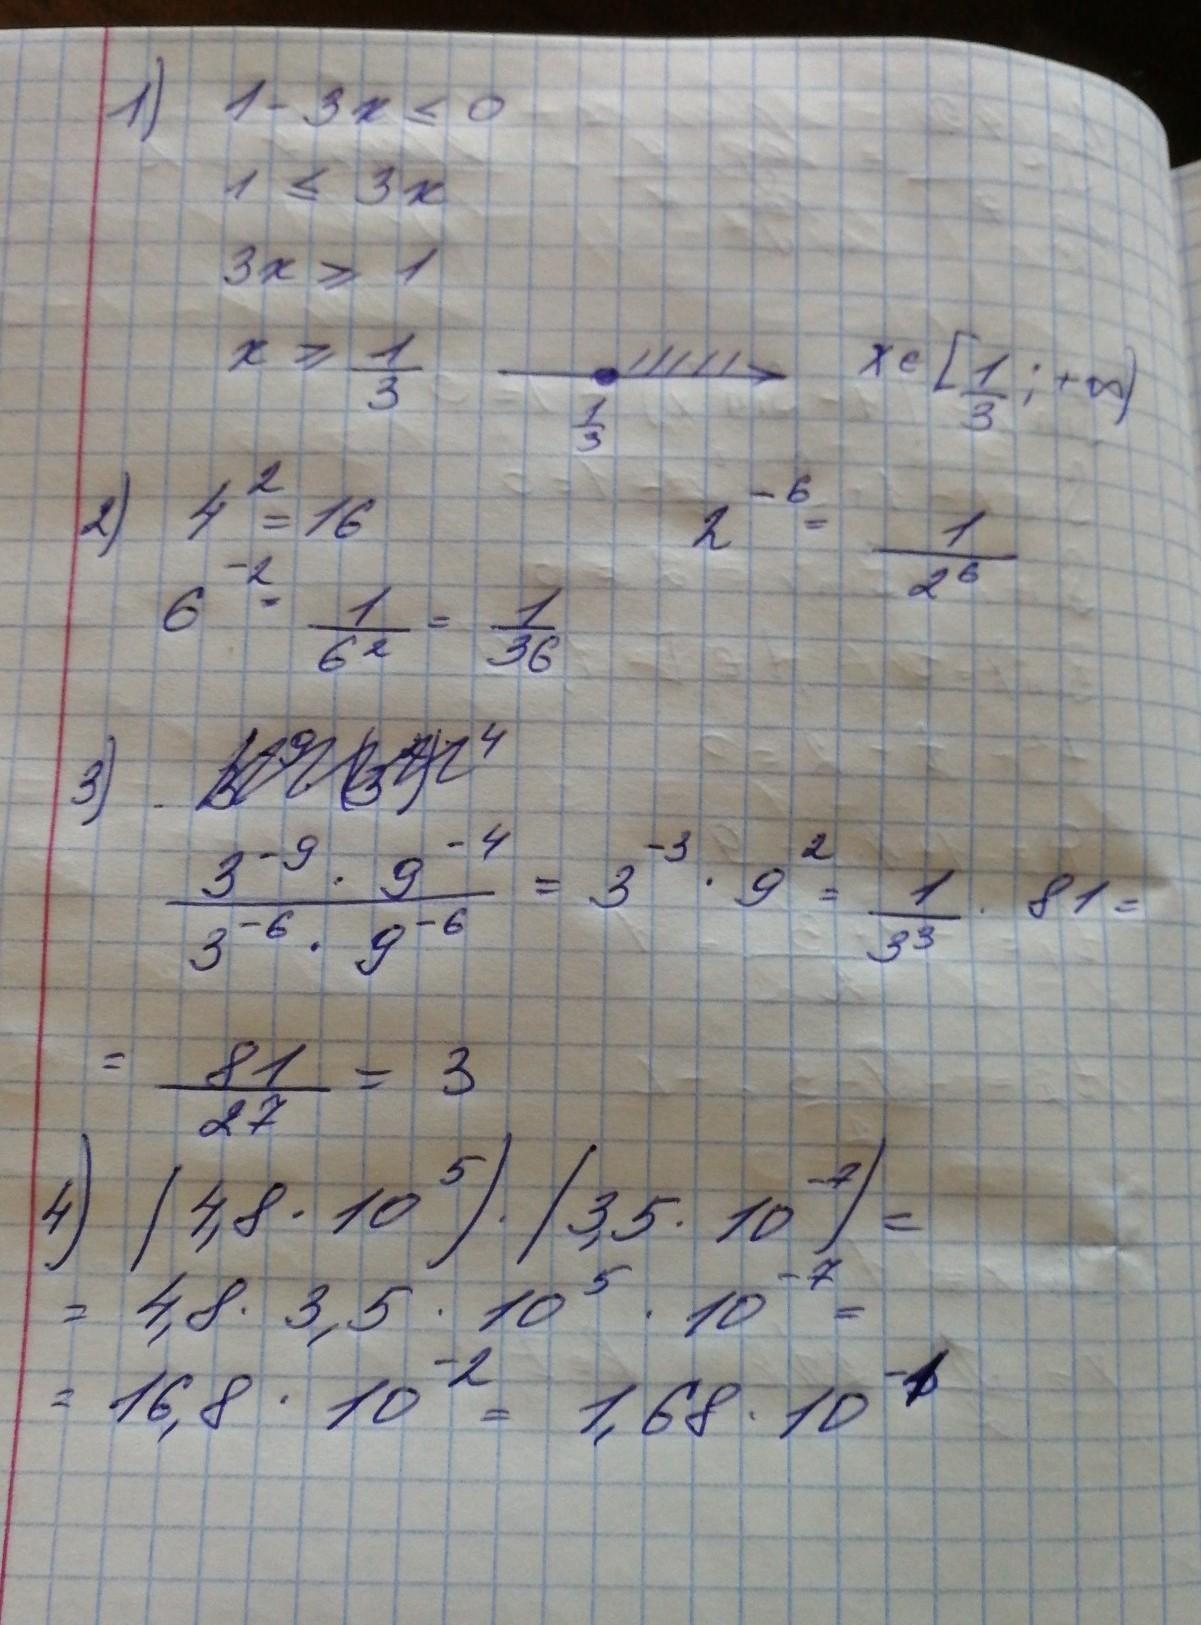 1) 1 - 3x ≤ 0
1 ≤ 3x
3x ≥ 1
x ≥ 1/3   1/3   x ∈ [1/3; +∞)
2) 4² = 16   2⁻⁶ = 1/2⁶
6⁻² = 1/6² = 1/36
3)
(3⁻⁹ · 9⁻⁴)/(3⁻⁶ · 9⁻⁶) = 3⁻³ · 9² = 1/3³ · 81 =
= 81/27 = 3
4) (4,8 · 10⁵) · (3,5 · 10⁻⁷) =
= 4,8 · 3,5 · 10⁵ · 10⁻⁷ =
= 16,8 · 10⁻² = 1,68 · 10⁻¹